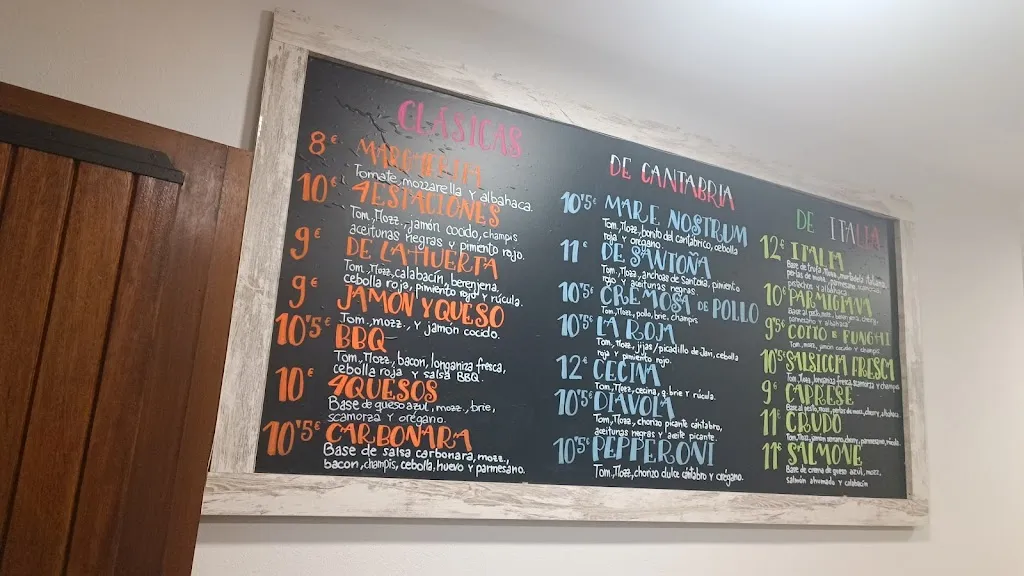 CLÁSICAS
8€ MARGHERITA
Tomate, mozzarella y albahaca.
10€ 4 ESTACIONES
Tom., Mozz., jamón cocido, champis
aceitunas negras y pimiento rojo.
9€ DE LA HUERTA
Tom., Mozz, calabacín, berenjena,
cebolla roja, pimiento rojo y rúcula.
9€ JAMON Y QUESO
Tom., mozz., y jamón cocido.
10'5€ BBQ
Tom., Mozz, bacon, longaniza fresca,
cebolla roja y salsa BBQ.
10€ 4QUESOS
Base de queso azul, mozz., brie,
scamorza y orégano.
10'5€ CARBONARA
Base de salsa carbonara, mozz.,
bacon, champis, cebolla, huevo y parmesano.
DE CANTABRIA
10'5€ MARE NOSTRUM
Tom., Mozz., bonito del cantábrico, cebolla
roja y orégano.
11€ DE SANTOÑA
Tom., Mozz., anchoas de Santoña, pimiento
rojo y aceitunas negras
10'5€ CREMOSA DE POLLO
Tom., Mozz, pollo, brie, champis
10'5€ LA ROJA
Tom., Mozz., jijas/picadillo de Javi, cebolla
roja y pimiento rojo.
12€ CECINA
Tom., Mozz., cecina, q. brie y rúcula.
10'5€ DIAVOLA
Tom., Mozz., chorizo picante cántabro,
aceitunas negras y aceite picante.
10'5€ PEPPERONI
Tom., Mozz., chorizo dulce cántabro y orégano.
DE ITALIA
12€ ITALIA
Base de trufa, Mozz., mortadela italiana,
perlas de mozz., parmesano,
pistachos y albahaca
10€ PARMIGIANA
parmesano y albahaca
9'5€ COTTO E FUNGHI
Tom., mozz., jamón cocido y champis.
10'5€ SALSICCIA FRESCA
Tom., Mozz, longaniza fresca, scamorza y champis
9€ CAPRESE
Base al pesto, mozz., perlas de mozz, cherry, albahaca.
11€ CRUDO
Tom., Mozz, jamón serrano, cherry, parmesano, rúcula.
11€ SALMONE
Base de crema de queso azul, mozz.,
salmón ahumado y calabacín